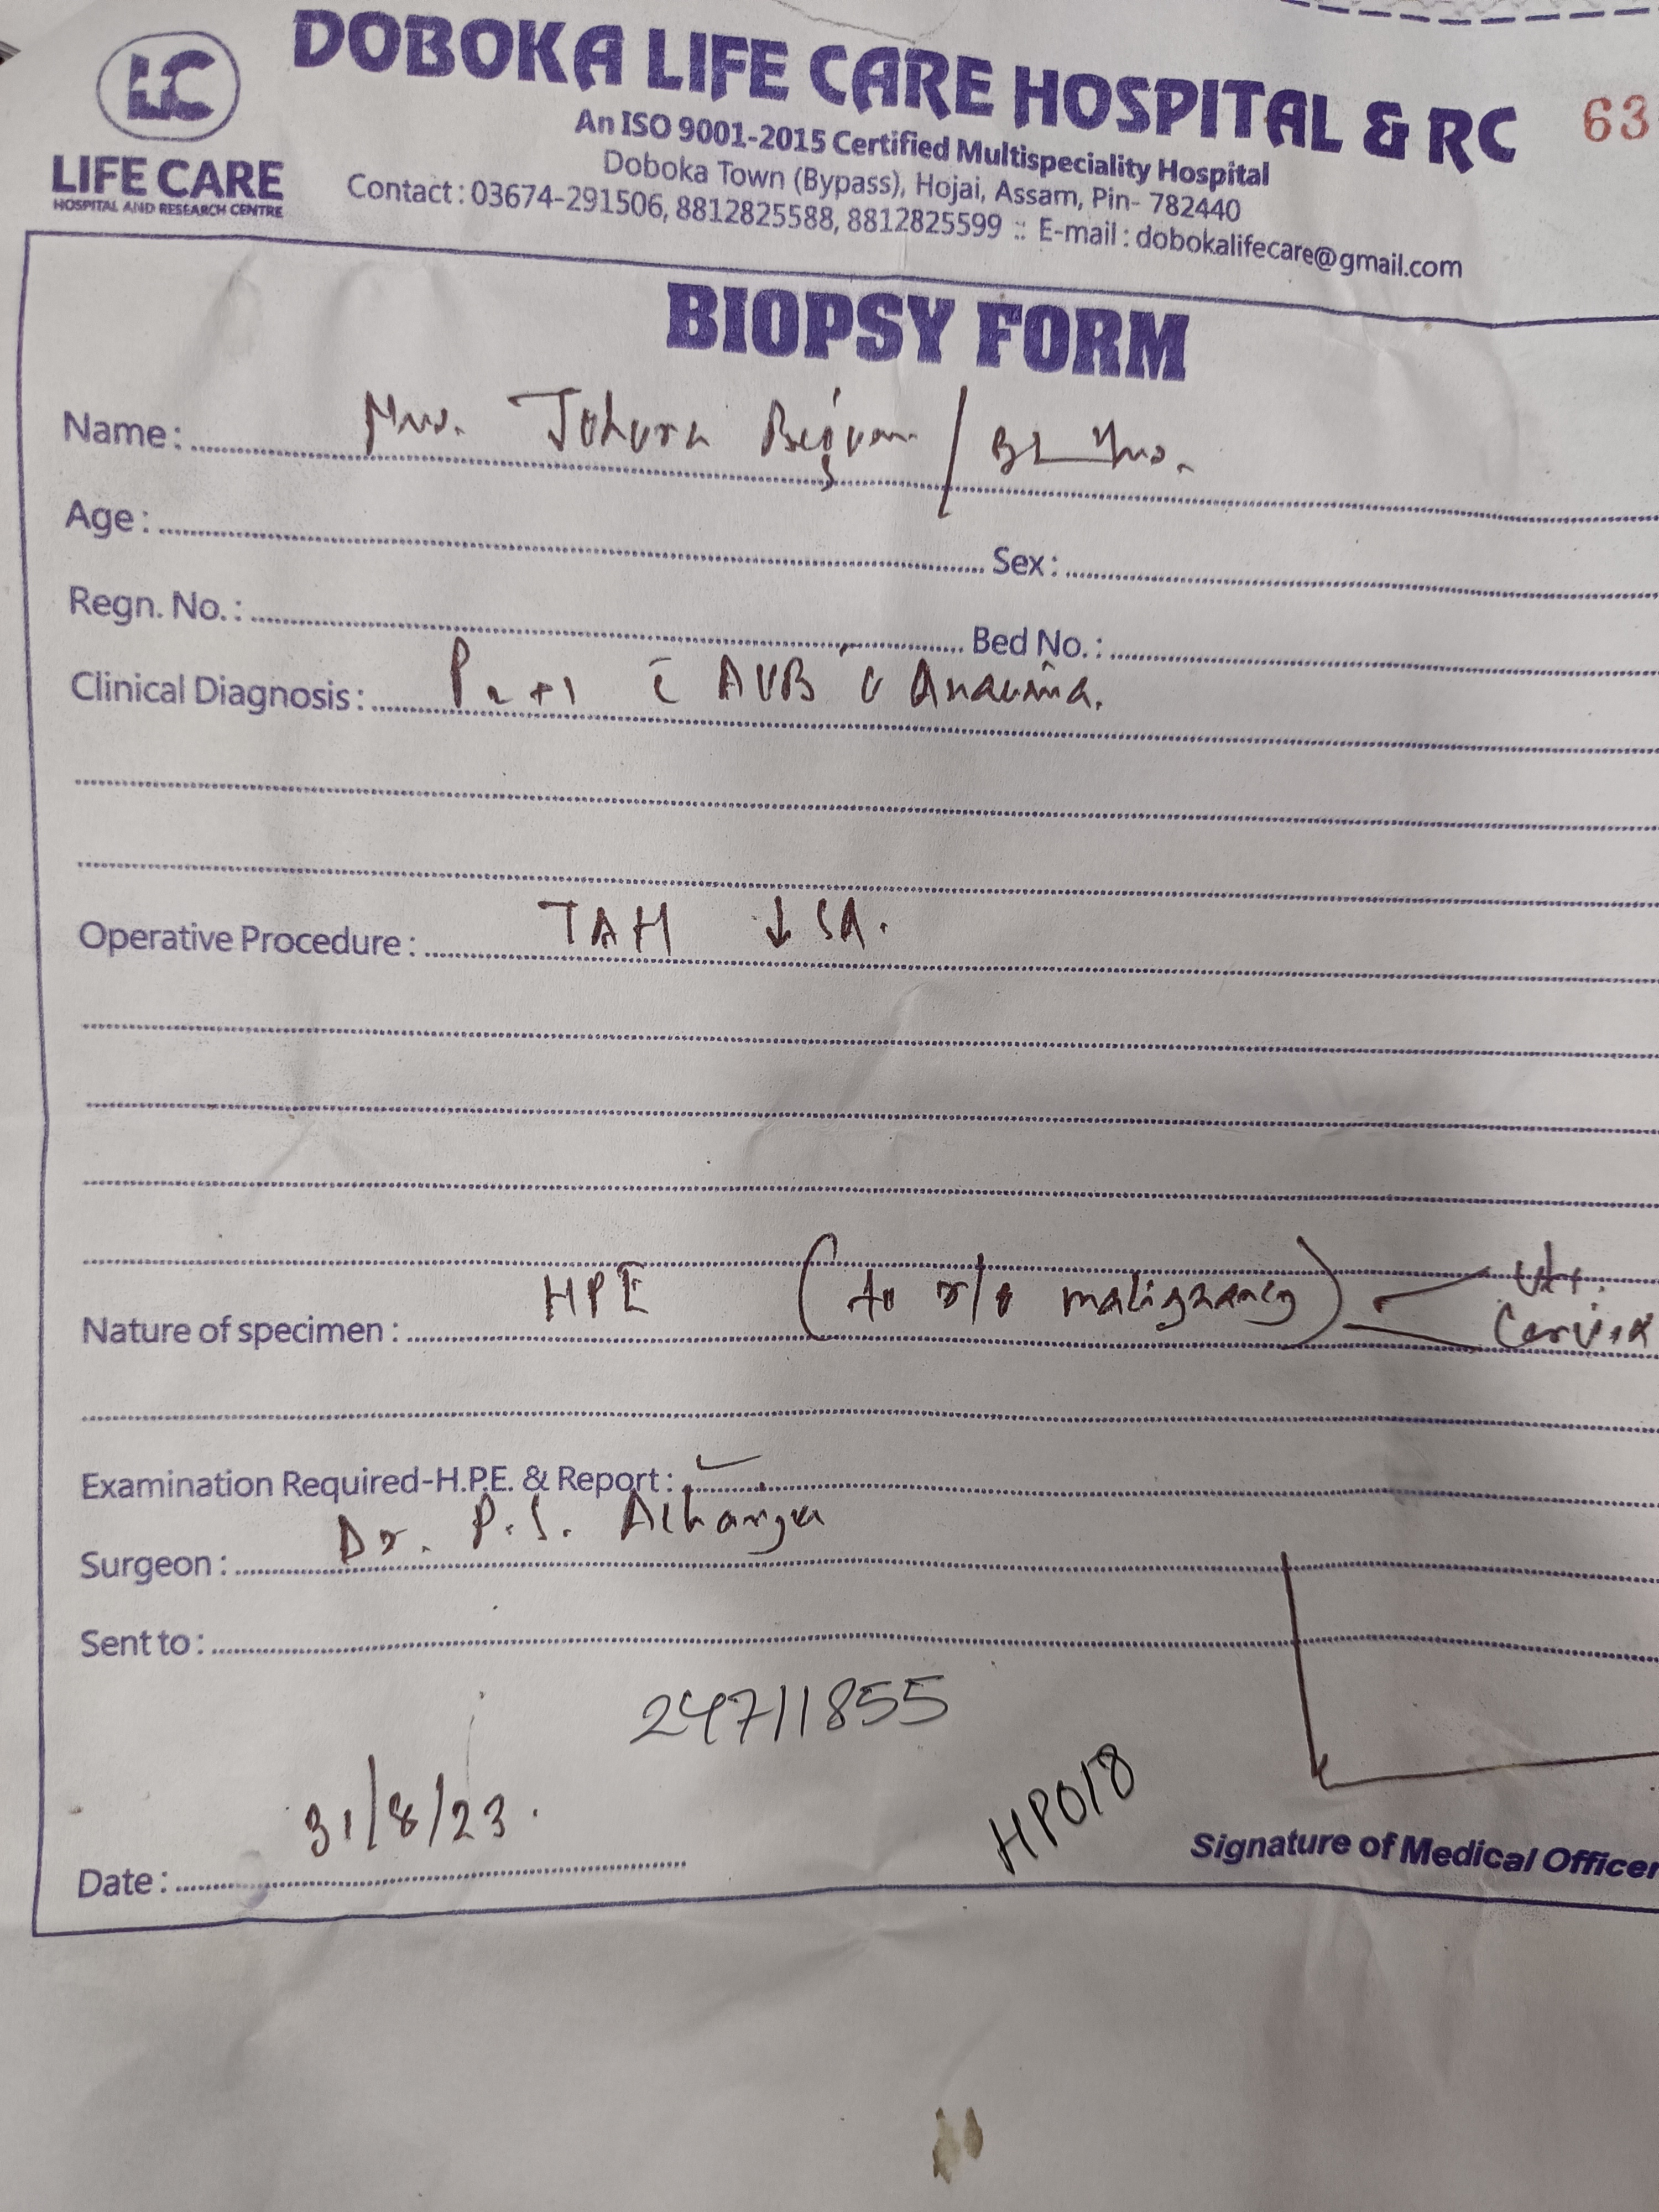 LC
LIFE CARE
HOSPITAL AND RESEARCH CENTRE
DOBOKA LIFE CARE HOSPITAL & RC
63
An ISO 9001-2015 Certified Multispeciality Hospital
Doboka Town (Bypass), Hojai, Assam, Pin- 782440
Contact : 03674-291506, 8812825588, 8812825599 :: E-mail : dobokalifecare@gmail.com
BIOPSY FORM
Name: Mrs. Johura Begum /
Age: Sex:
Regn. No.: Bed No.:
Clinical Diagnosis: P2+1 c̄ AUB c̄ Anaemia.
Operative Procedure: TAH ↓ SA.
Nature of specimen: HPE (to r/o malignancy) Ut. Cervix
Examination Required-H.P.E. & Report: ✓
Surgeon: Dr. P. S.
Sent to:
24711855
31/8/23.
HP018
Date: Signature of Medical Officer